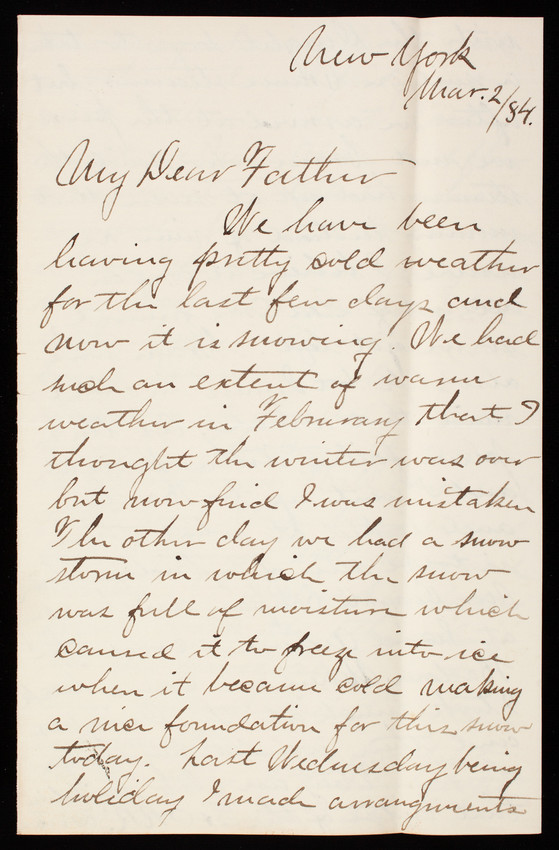 New York
Mar. 2/84.
My Dear Father
We have been
having pretty cold weather
for the last few days and
now it is snowing. We had
such an extent of warm
weather in February that I
thought the winter was over
but now find I was mistaken
The other day we had a snow
storm in which the snow
was full of moisture which
caused it to freeze into ice
when it became cold making
a nice foundation for this snow
today. Last Wednesday being
holiday I made arrangments